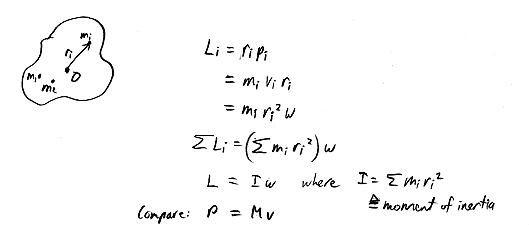 mᵢ
rᵢ
m₁
m₂
O
Lᵢ = rᵢ pᵢ
= mᵢ vᵢ rᵢ
= mᵢ rᵢ² ω
Σ Lᵢ = (Σ mᵢ rᵢ²) ω
L = I ω where I = Σ mᵢ rᵢ²
≙ moment of inertia
Compare: P = M v